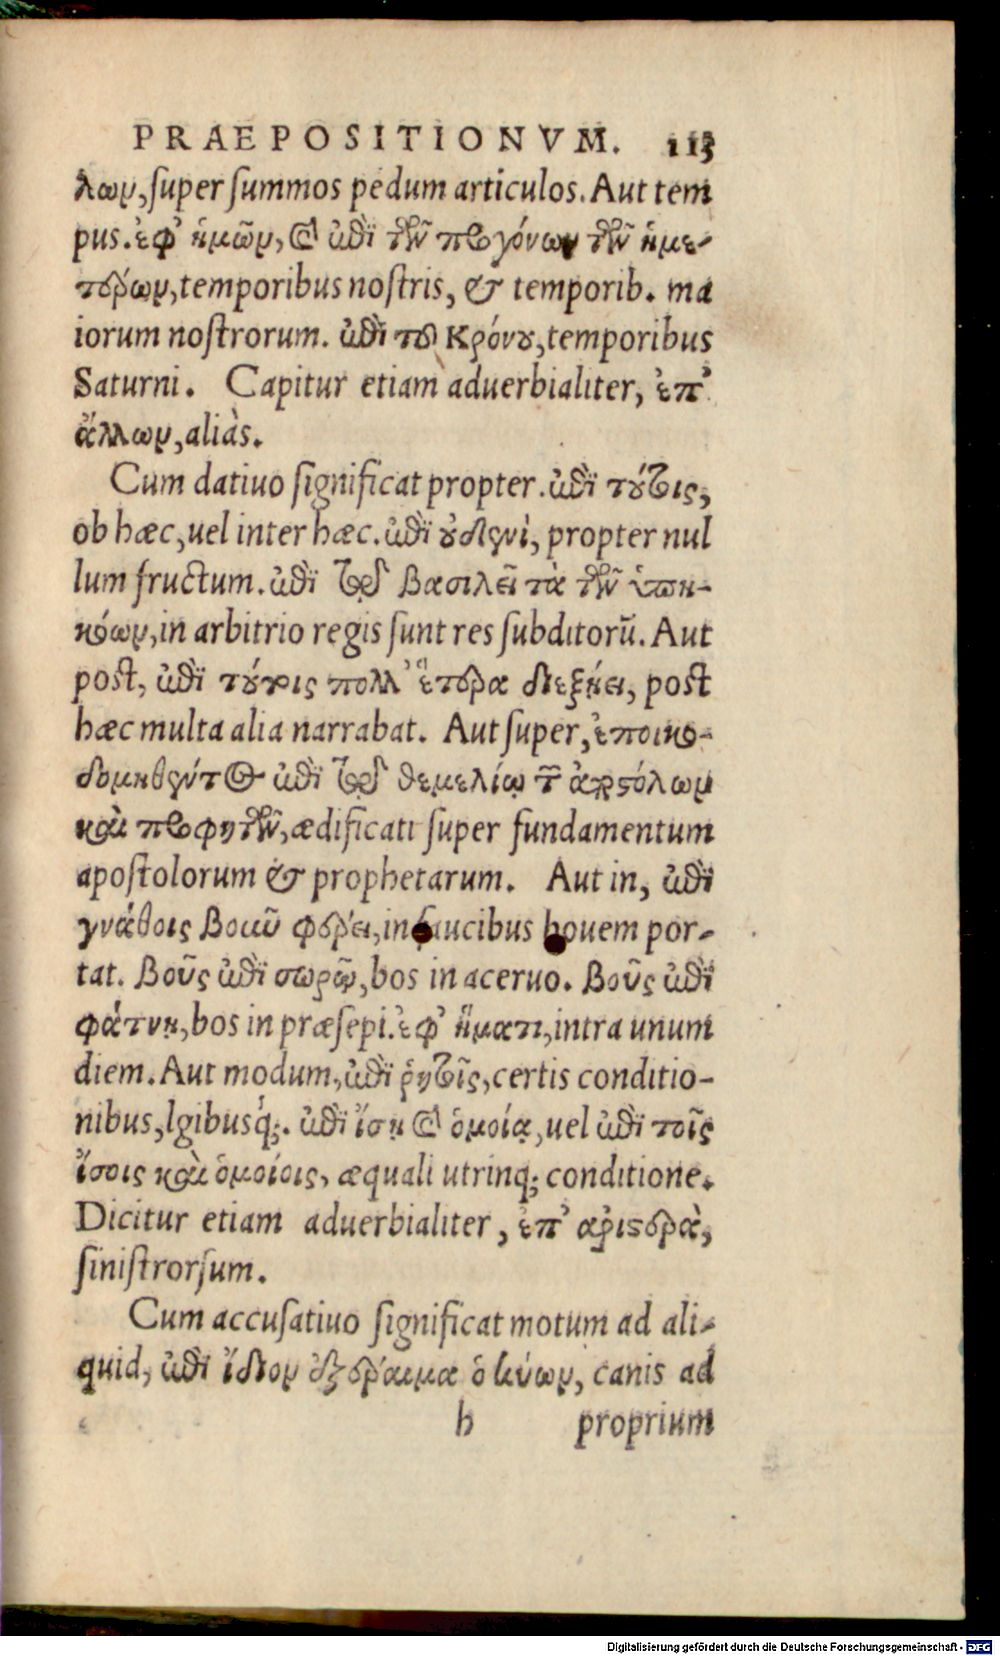 PRAEPOSITIONVM. 113
λων, super summos pedum articulos. Aut tem
pus. ἐφ' ἡμῶν, & ἐπὶ τῶν προγόνων τῶν ἡμε-
τέρων, temporibus nostris, & temporib. ma
iorum nostrorum. ἐπὶ τοῦ Κρόνου, temporibus
Saturni. Capitur etiam aduerbialiter, ἐπ'
ἄλλων, aliàs.
Cum datiuo significat propter. ἐπὶ τούτοις,
ob hæc, uel inter hæc. ἐπὶ οὐδενὶ, propter nul
lum fructum. ἐπὶ τῷ βασιλεῖ τὰ τῶν ὑπη-
κόων, in arbitrio regis sunt res subditorũ. Aut
post, ἐπὶ τούτοις πολλ' ἕτερα διεξῄει, post
hæc multa alia narrabat. Aut super, ἐποικο-
δομηθέντες ἐπὶ τῷ θεμελίῳ τῶν ἀποστόλων
καὶ προφητῶν, ædificati super fundamentum
apostolorum & prophetarum. Aut in, ἐπὶ
γνάθοις βοῦν φέρει, in faucibus bouem por-
tat. Βοῦς ἐπὶ σωρῷ, bos in aceruo. Βοῦς ἐπὶ
φάτνῃ, bos in præsepi. ἐφ' ἥματι, intra unum
diem. Aut modum, ἐπὶ ῥητοῖς, certis conditio-
nibus, lgibusq;. ἐπὶ ἴσῃ & ὁμοίᾳ, uel ἐπὶ τοῖς
ἴσοις καὶ ὁμοίοις, æquali utrinq; conditione.
Dicitur etiam aduerbialiter, ἐπ' ἀριστερὰ,
sinistrorsum.
Cum accusatiuo significat motum ad ali-
quid, ἐπὶ ἴδιον ἐξέραμα ὁ κύων, canis ad
h proprium
Digitalisierung gefördert durch die Deutsche Forschungsgemeinschaft - DFG